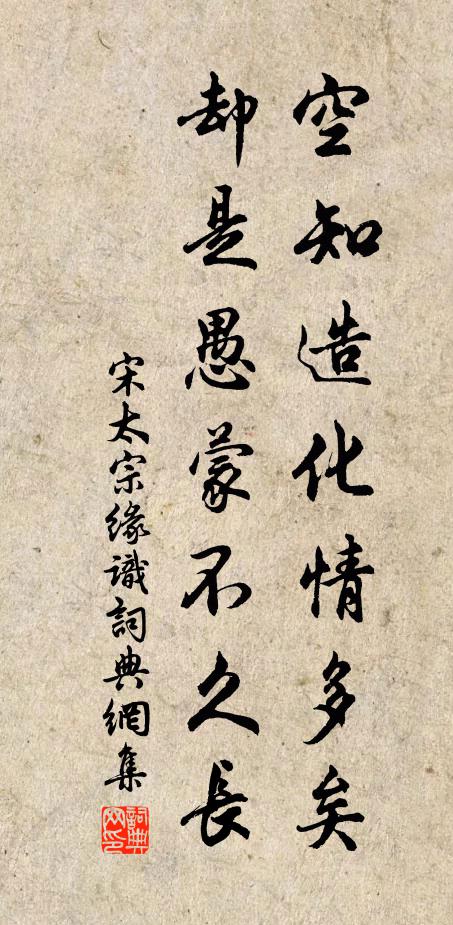 空知造化情多矣
却是愚蒙不久長
宋太宗緣識詞典網集
詞典网印